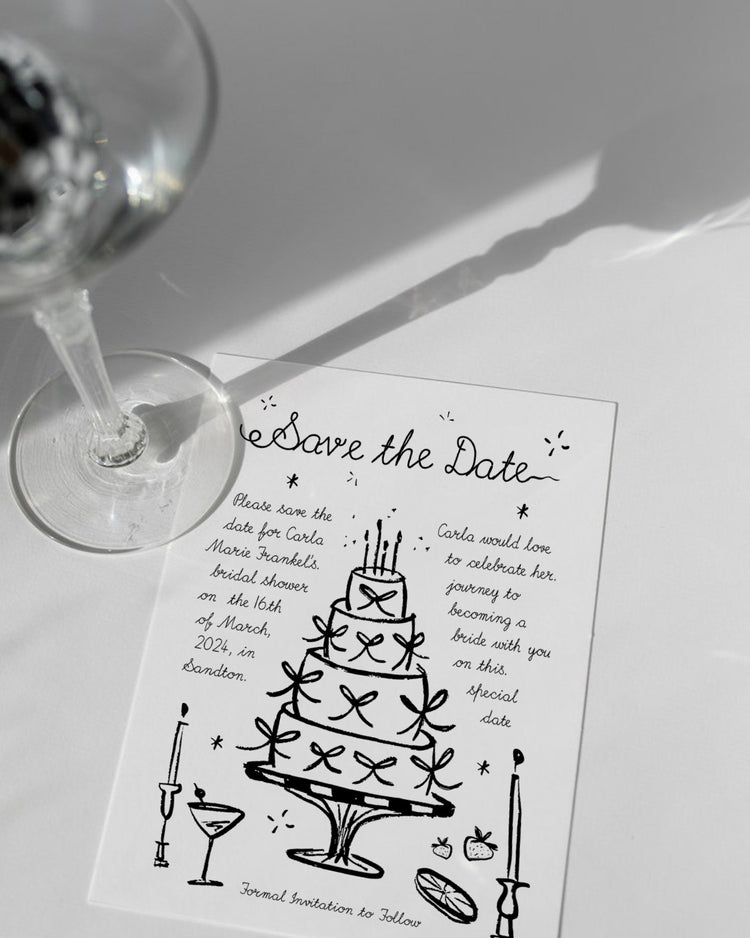 Save the Date
Please save the
date for Carla
Marie Frankel's.
bridal shower
on the 16th
of March,
2024, in
Sandton.
Carla would love
to celebrate her.
journey to
becoming a
bride with you
on this.
special
date
Formal Invitation to Follow